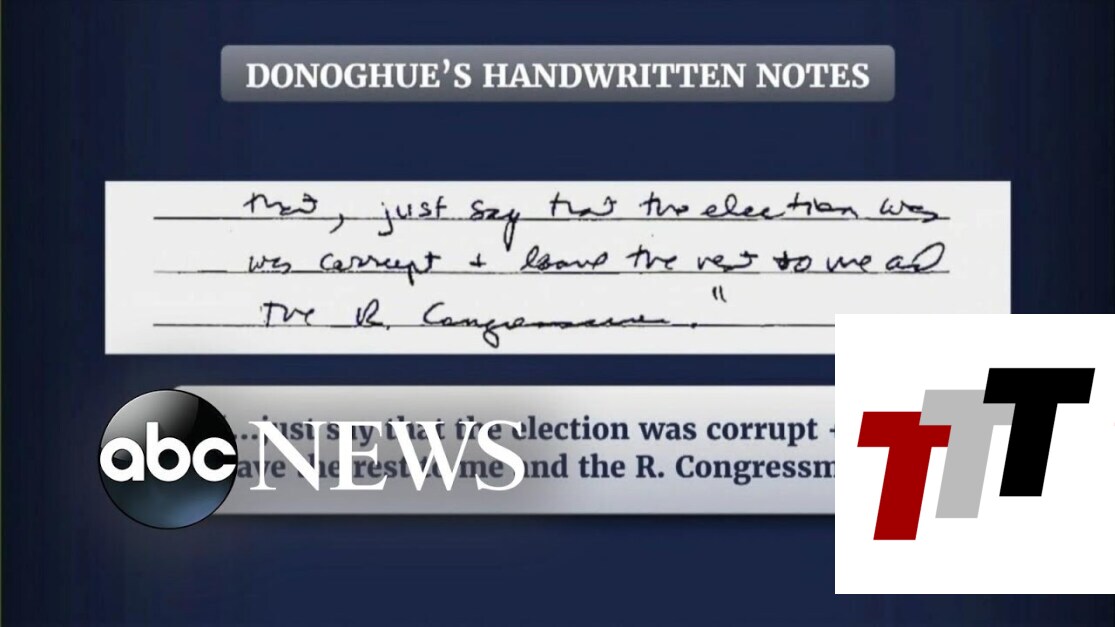 DONOGHUE'S HANDWRITTEN NOTES
that, just say that the election was
was corrupt + leave the rest to me and
the R. Congressmen."
...just say that the election was corrupt +
ave the rest to me and the R. Congressm
abc NEWS
TTT